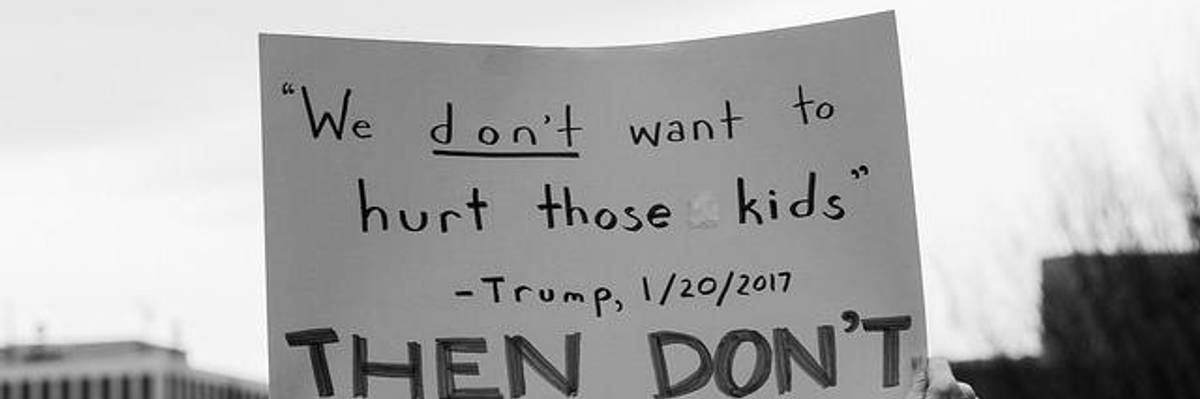 “We don't want to
hurt those kids”
-Trump, 1/20/2017
THEN DON'T